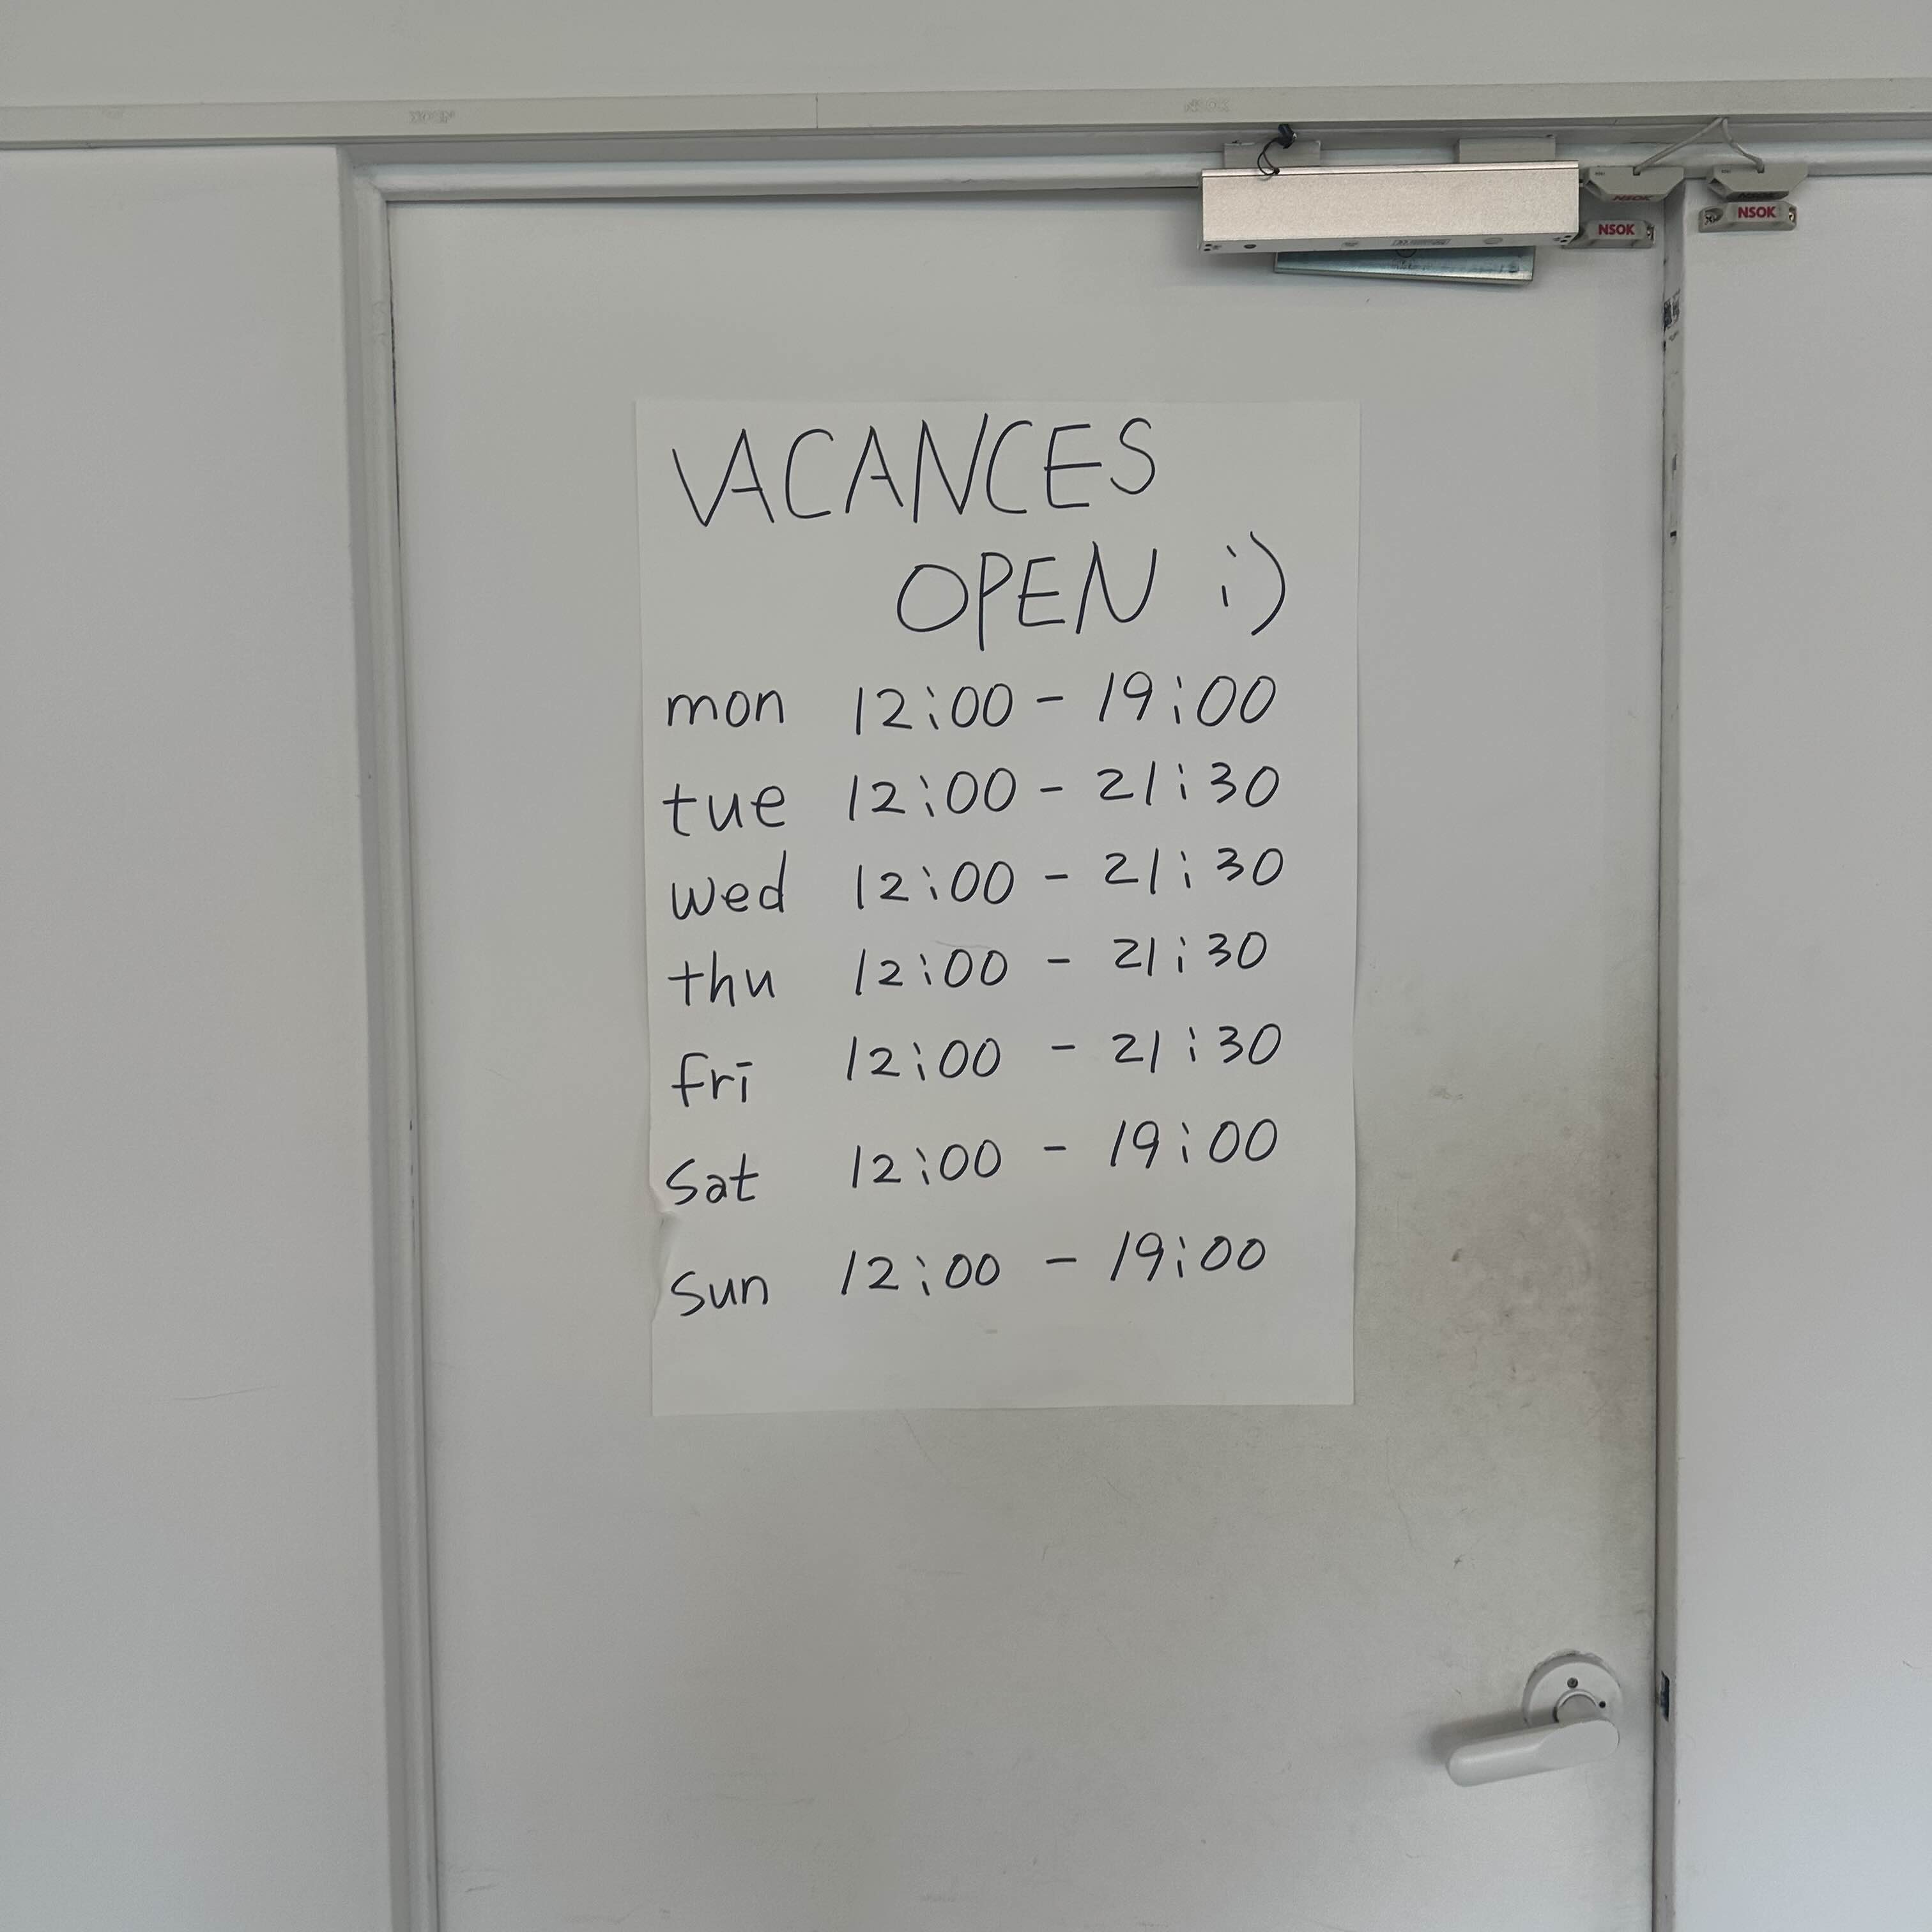 VACANCES
OPEN :)
mon 12:00 - 19:00
tue 12:00 - 21:30
wed 12:00 - 21:30
thu 12:00 - 21:30
fri 12:00 - 21:30
Sat 12:00 - 19:00
Sun 12:00 - 19:00
NSOK
NSOK